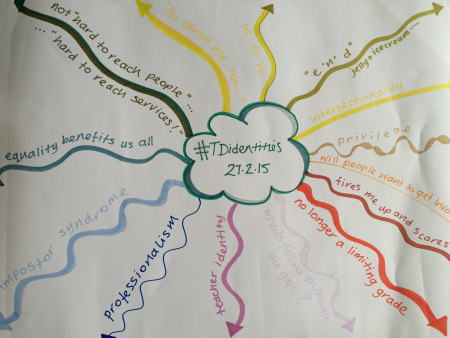 #TDidentities
27.2.15
not "hard to reach people"...
..."hard to reach services!"
"it's about me too..."
W O W
"e n d"
jelly + icecream...
intersectionality
privilege
will people want to get
fires me up and scares
no longer a limiting grade
who's falling through
the gaps?
teacher identity
professionalism
impostor syndrome
equality benefits us all